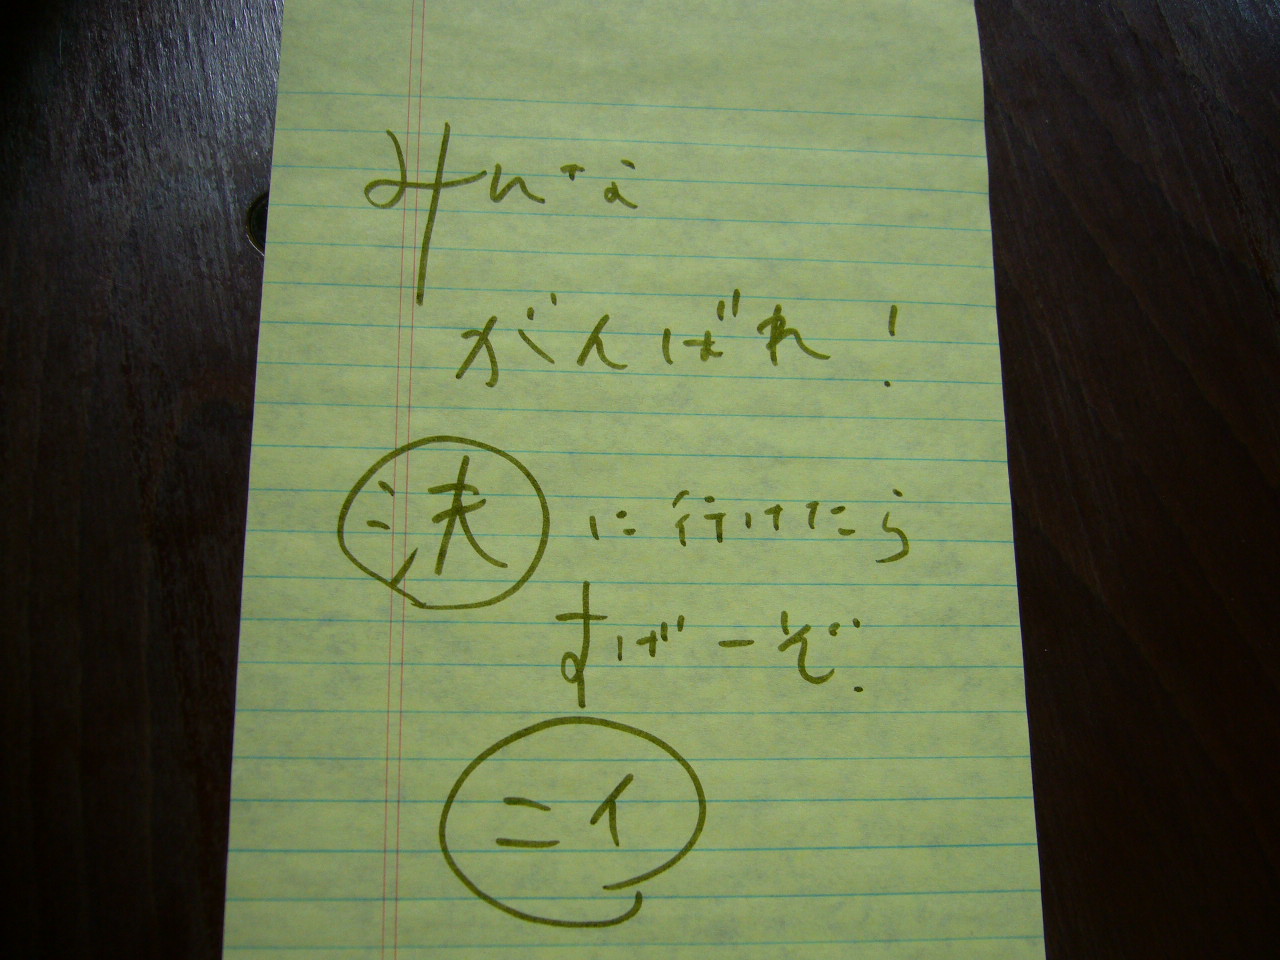 みんな
がんばれ!
決に行けたら
すげーぞ.
ニイ